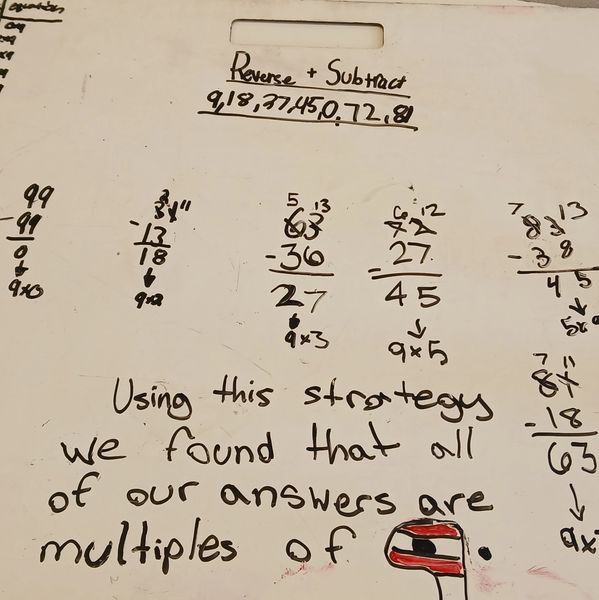 equation
Reverse + Subtract
9,18,27,45,0,72,81
99
- 99
0
9x0
2 11
31
- 13
18
9x2
5 13
63
- 36
27
9x3
6 12
72
- 27
45
9x5
7 13
83
- 38
45
5x9
7 11
81
- 18
63
9x
Using this strategy
we found that all
of our answers are
multiples of 9.